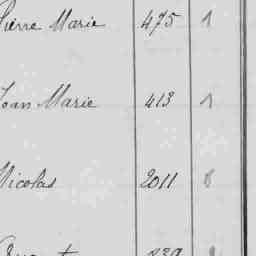 Pierre Marie 475 1
Jean Marie 413 1
Nicolas 2011 8
839